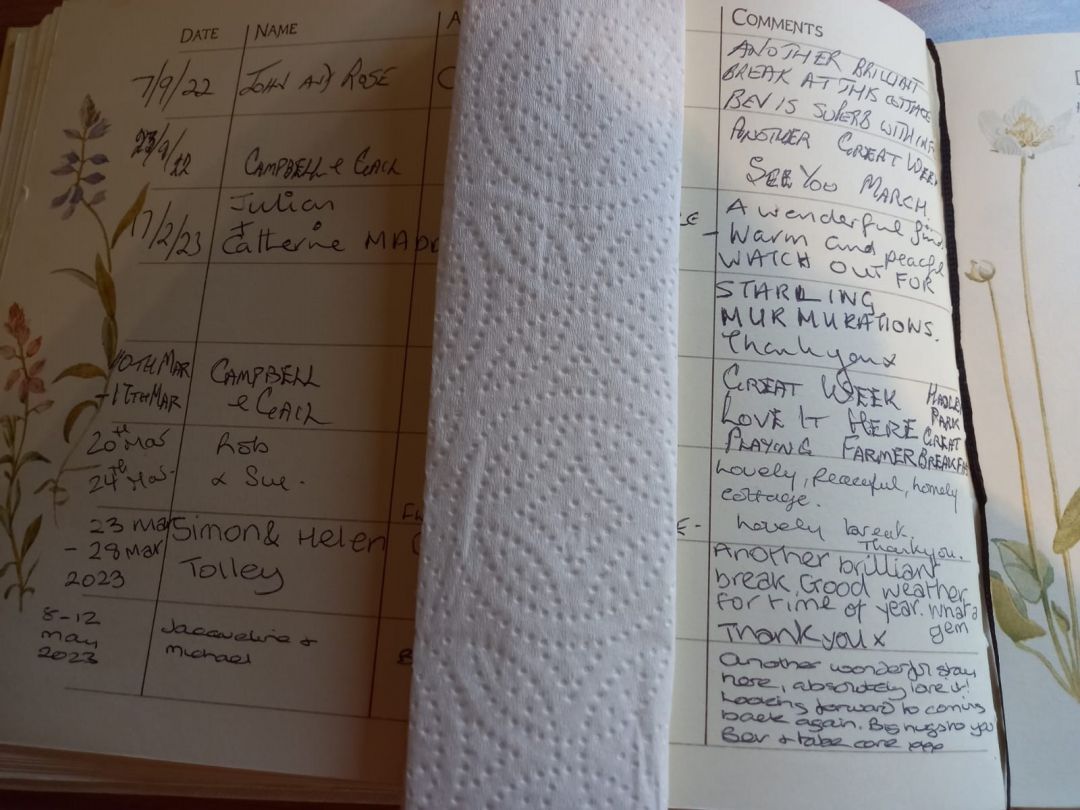 DATE NAME A COMMENTS
7/9/22 JOHN AND ROSE C ANOTHER BRILLIANT
BREAK AT THIS COTTAGE
BEV IS SUPERB WITH
23/9/22 CAMPBELL & GAIL ANOTHER GREAT WEEK
SEE YOU MARCH.
17/2/23 Julian
+ Catherine MADD A wonderful find.
- Warm and peacful
WATCH OUT FOR
STARLING
MURMURATIONS.
Thankyou x
10TH MAR
- 17TH MAR CAMPBELL
& GAIL GREAT WEEK HADLEY
LOVE IT HERE PARK
PLAYING GREAT
FARMER BREAKFAST
20th Mar
24th Mar- Rob
& Sue. Lovely, Peaceful, homely
cottage.
Lovely break,
Thankyou.
23 Mar
- 28 Mar
2023 Simon & Helen
Tolley Another brilliant
break. Good weather
for time of year. What a
gem
Thank you x
8-12
may
2023 Jacqueline +
Michael B Another wonderful stay
here, absolutely love it!
Looking forward to coming
back again. Big hugs to you
Bev + take care